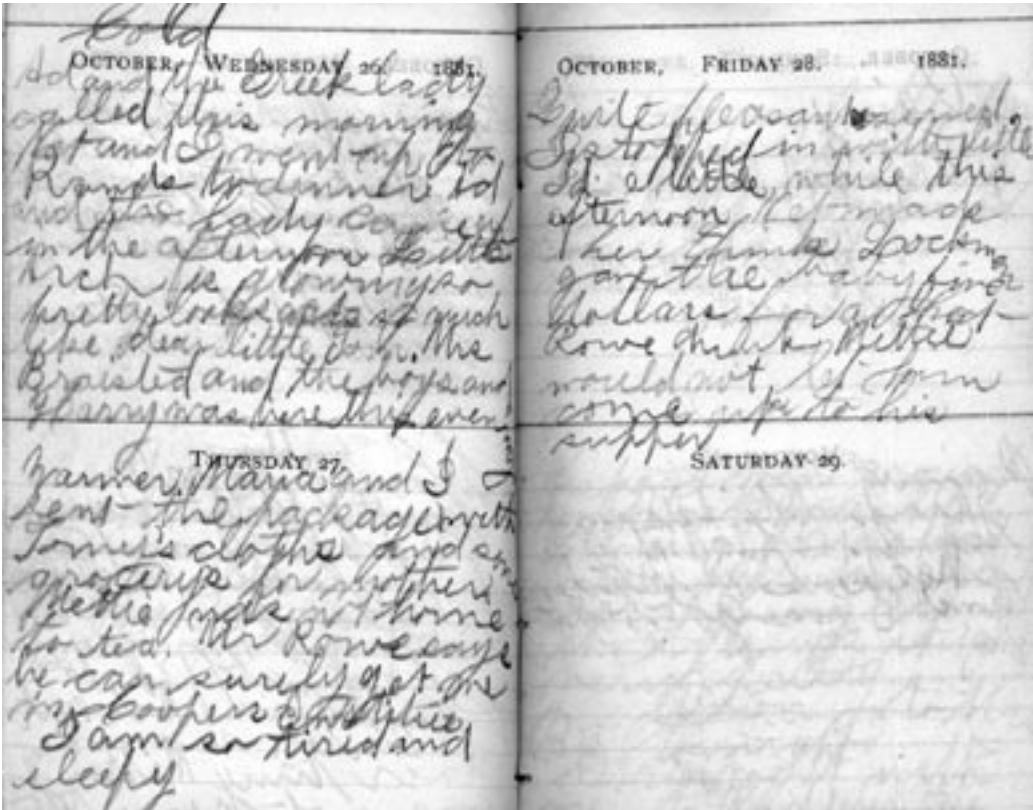 Cold
OCTOBER, WEDNESDAY 26. 1881.
Ad and the Creek lady
called this morning
Net and I went up to
Rands to dinner Ad
and the lady came up
in the afternoon Little
is growing so
pretty looks so much
like dear little Tom. Mrs
Braisted and the boys and
Harry was here this even
THURSDAY 27.
Warmer. Maria and I
sent the package with
Tomey's cloths and some
grocerys for mother
Nettie was at home
to tea. Mr Rowe says
he can surely get me
in Coopers
I am so tired and
sleepy
OCTOBER, FRIDAY 28. 1881.
Quite pleasant
I stopped in with little
Id a little while this
afternoon Net made
her
gave the baby five
dollars for a
Rowe Nettie
would not let him
come up to his
supper
SATURDAY 29.